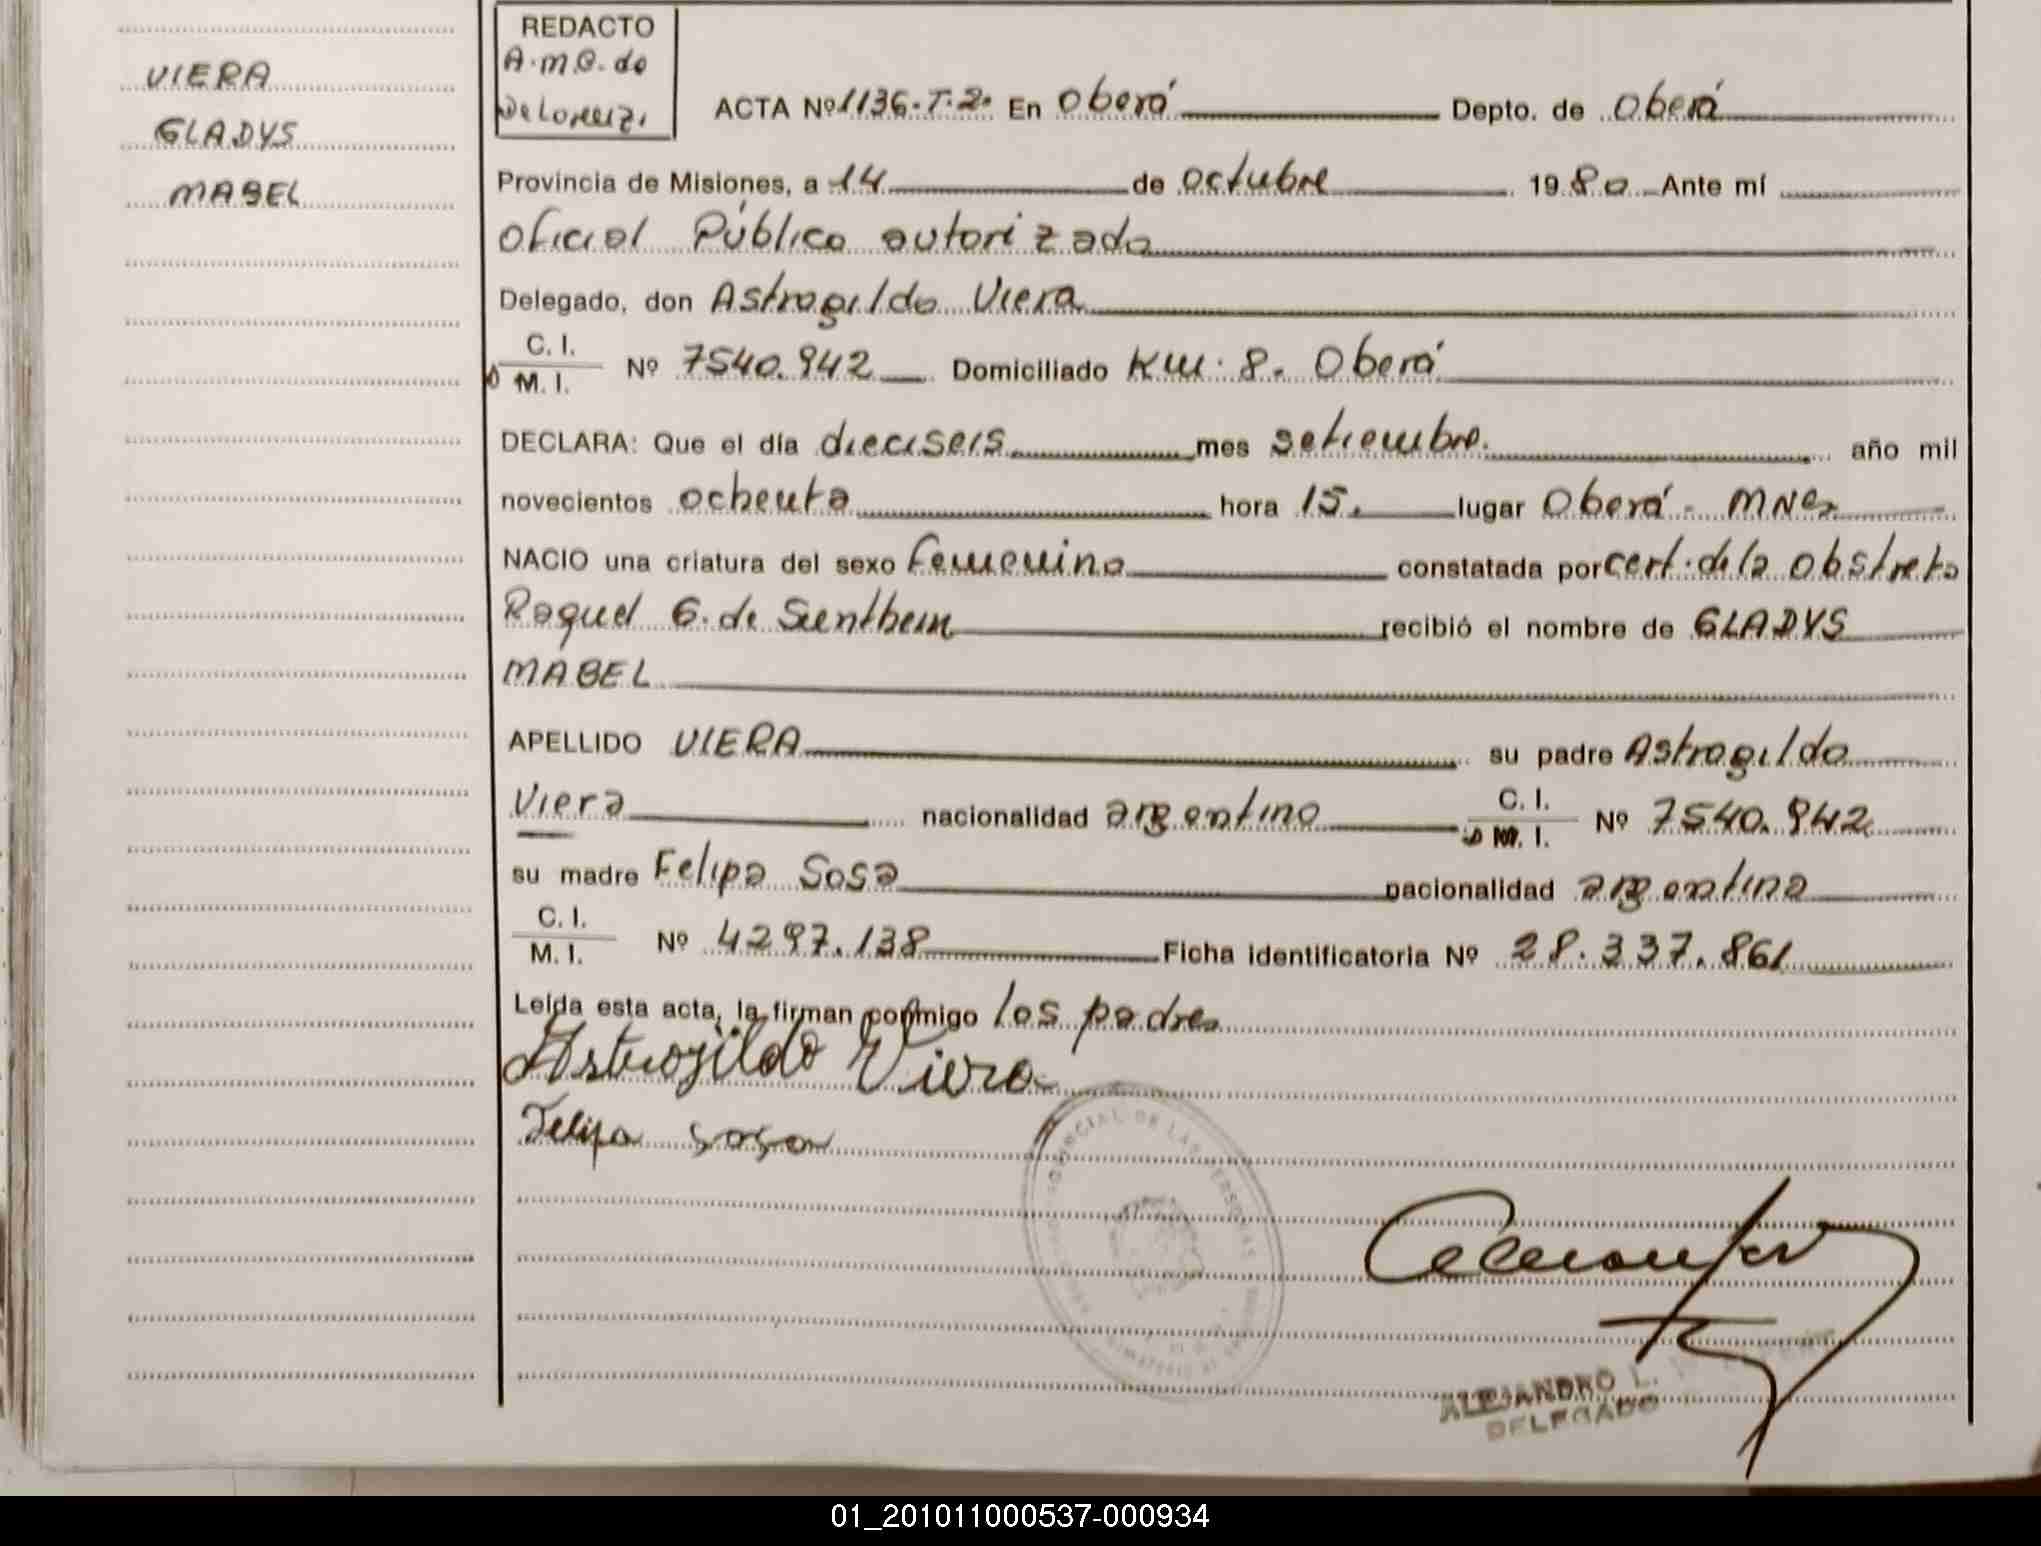 VIERA
GLADYS
MABEL
REDACTO
A.M.C. de
De Lorenzi
ACTA Nº 1136.T.2. En Oberá Depto. de Oberá
Provincia de Misiones, a 14 de octubre 1980 Ante mí
Oficial Público autorizado
Delegado, don Astrogildo Viera
C. I.
M. I. Nº 7540.942 Domiciliado Km. 8. Oberá
DECLARA: Que el día dieciseis mes setiembre. año mil
novecientos ochenta hora 15. lugar Oberá - MNes
NACIO una criatura del sexo femenino constatada por cert. de la obstreta
Raquel G. de recibió el nombre de GLADYS
MABEL
APELLIDO VIERA su padre Astrogildo
Viera nacionalidad argentino C. I.
M. I. Nº 7540.942
su madre Felipa Sosa nacionalidad argentina
C. I.
M. I. Nº 4297.138 Ficha identificatoria Nº 28.337.861
Leída esta acta, la firman conmigo los padres
Astrojildo Viera
Felipa Sosa
PROVINCIAL DE LAS PERSONAS
ALEJANDRO L.
DELEGADO
01_201011000537-000934